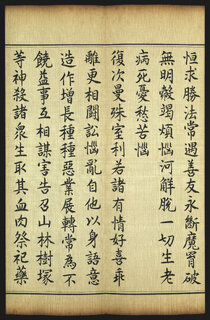 恒求勝法常遇善友永斷魔罥破
無明㲉竭煩惱河解脫一切生老
病死憂愁苦惱
復次曼殊室利若諸有情好喜乖
離更相鬪訟惱亂自他以身語意
造作增長種種惡業展轉常為不
饒益事互相謀害告召山林樹塚
等神殺諸眾生取其血肉祭祀藥